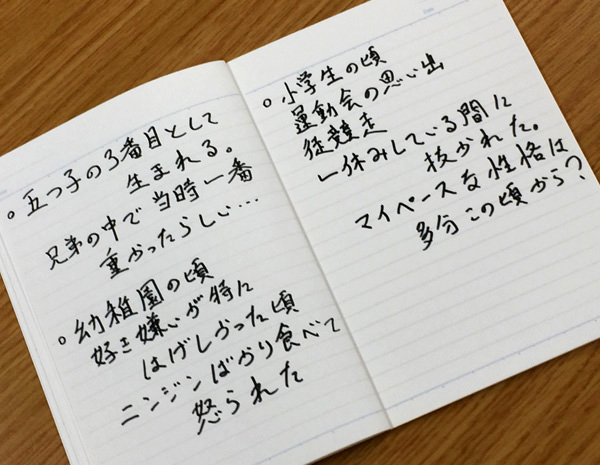 ○ 五つ子の3番目として
生まれる。
兄弟の中で当時一番
重かったらしい…
○ 幼稚園の頃
好き嫌いが特に
はげしかった頃
ニンジンばかり食べて
怒られた
○ 小学生の頃
運動会の思い出
徒競走
一休みしている間に
抜かれた。
マイペースな性格は
多分この頃から?